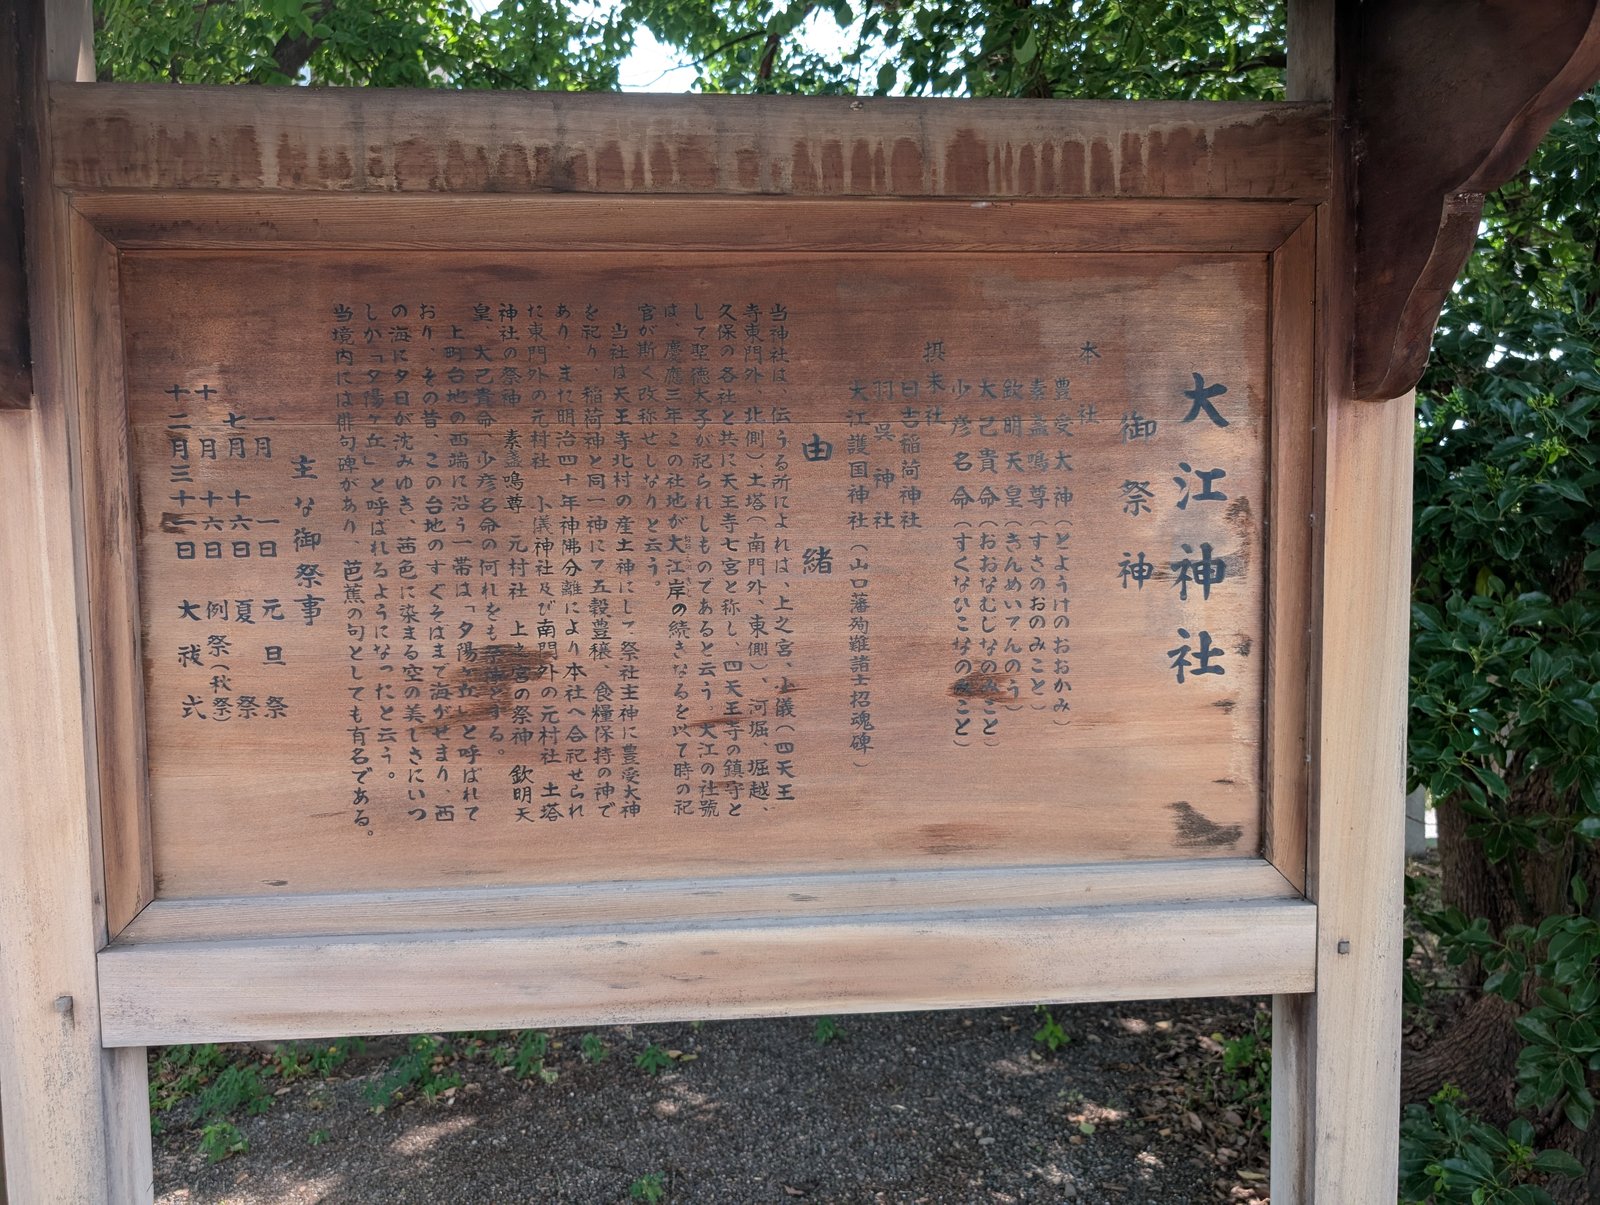 大江神社
御祭神
本社
豊受大神(とようけのおおかみ)
素盞鳴尊(すさのおのみこと)
欽明天皇(きんめいてんのう)
大己貴命(おおなむじなのみこと)
少彦名命(すくなひこなのみこと)
摂末社
日吉稲荷神社
羽呉神社
大江護国神社(山口藩殉難諸士招魂碑)
由緒
当神社は、伝うる所によれは、上之宮、小儀(四天王
寺東門外、北側)、土塔(南門外、東側)、河堀、堀越、
久保の各社と共に天王寺七宮と称し、四天王寺の鎮守と
して聖徳太子が祀られしものであると云う。大江の社號
は、慶應三年この社地が大江岸の続きなるを以て時の祀
官が斯く改称せしなりと云う。
当社は天王寺北村の産土神にして祭社主神に豊受大神
を祀り、稲荷神と同一神にて五穀豊穣、食糧保持の神で
あり、また明治四十年神佛分離により本社へ合祀せられ
た東門外の元村社 小儀神社及び南門外の元村社 土塔
神社の祭神 素盞鳴尊、元村社 上之宮の祭神 欽明天
皇、大己貴命、少彦名命の何れをも祭神とする。
上町台地の西端に沿う一帯は「夕陽ヶ丘」と呼ばれて
おり、その昔、この台地のすぐそはまで海がせまり、西
の海に夕日が沈みゆき、茜色に染まる空の美しさにいつ
しか「夕陽ヶ丘」と呼ばれるようになったと云う。
当境内には俳句碑があり、芭蕉の句としても有名である。
主な御祭事
一月 一日 元旦祭
七月 十六日 夏祭
十月 十六日 例祭(秋祭)
十二月三十一日 大祓式